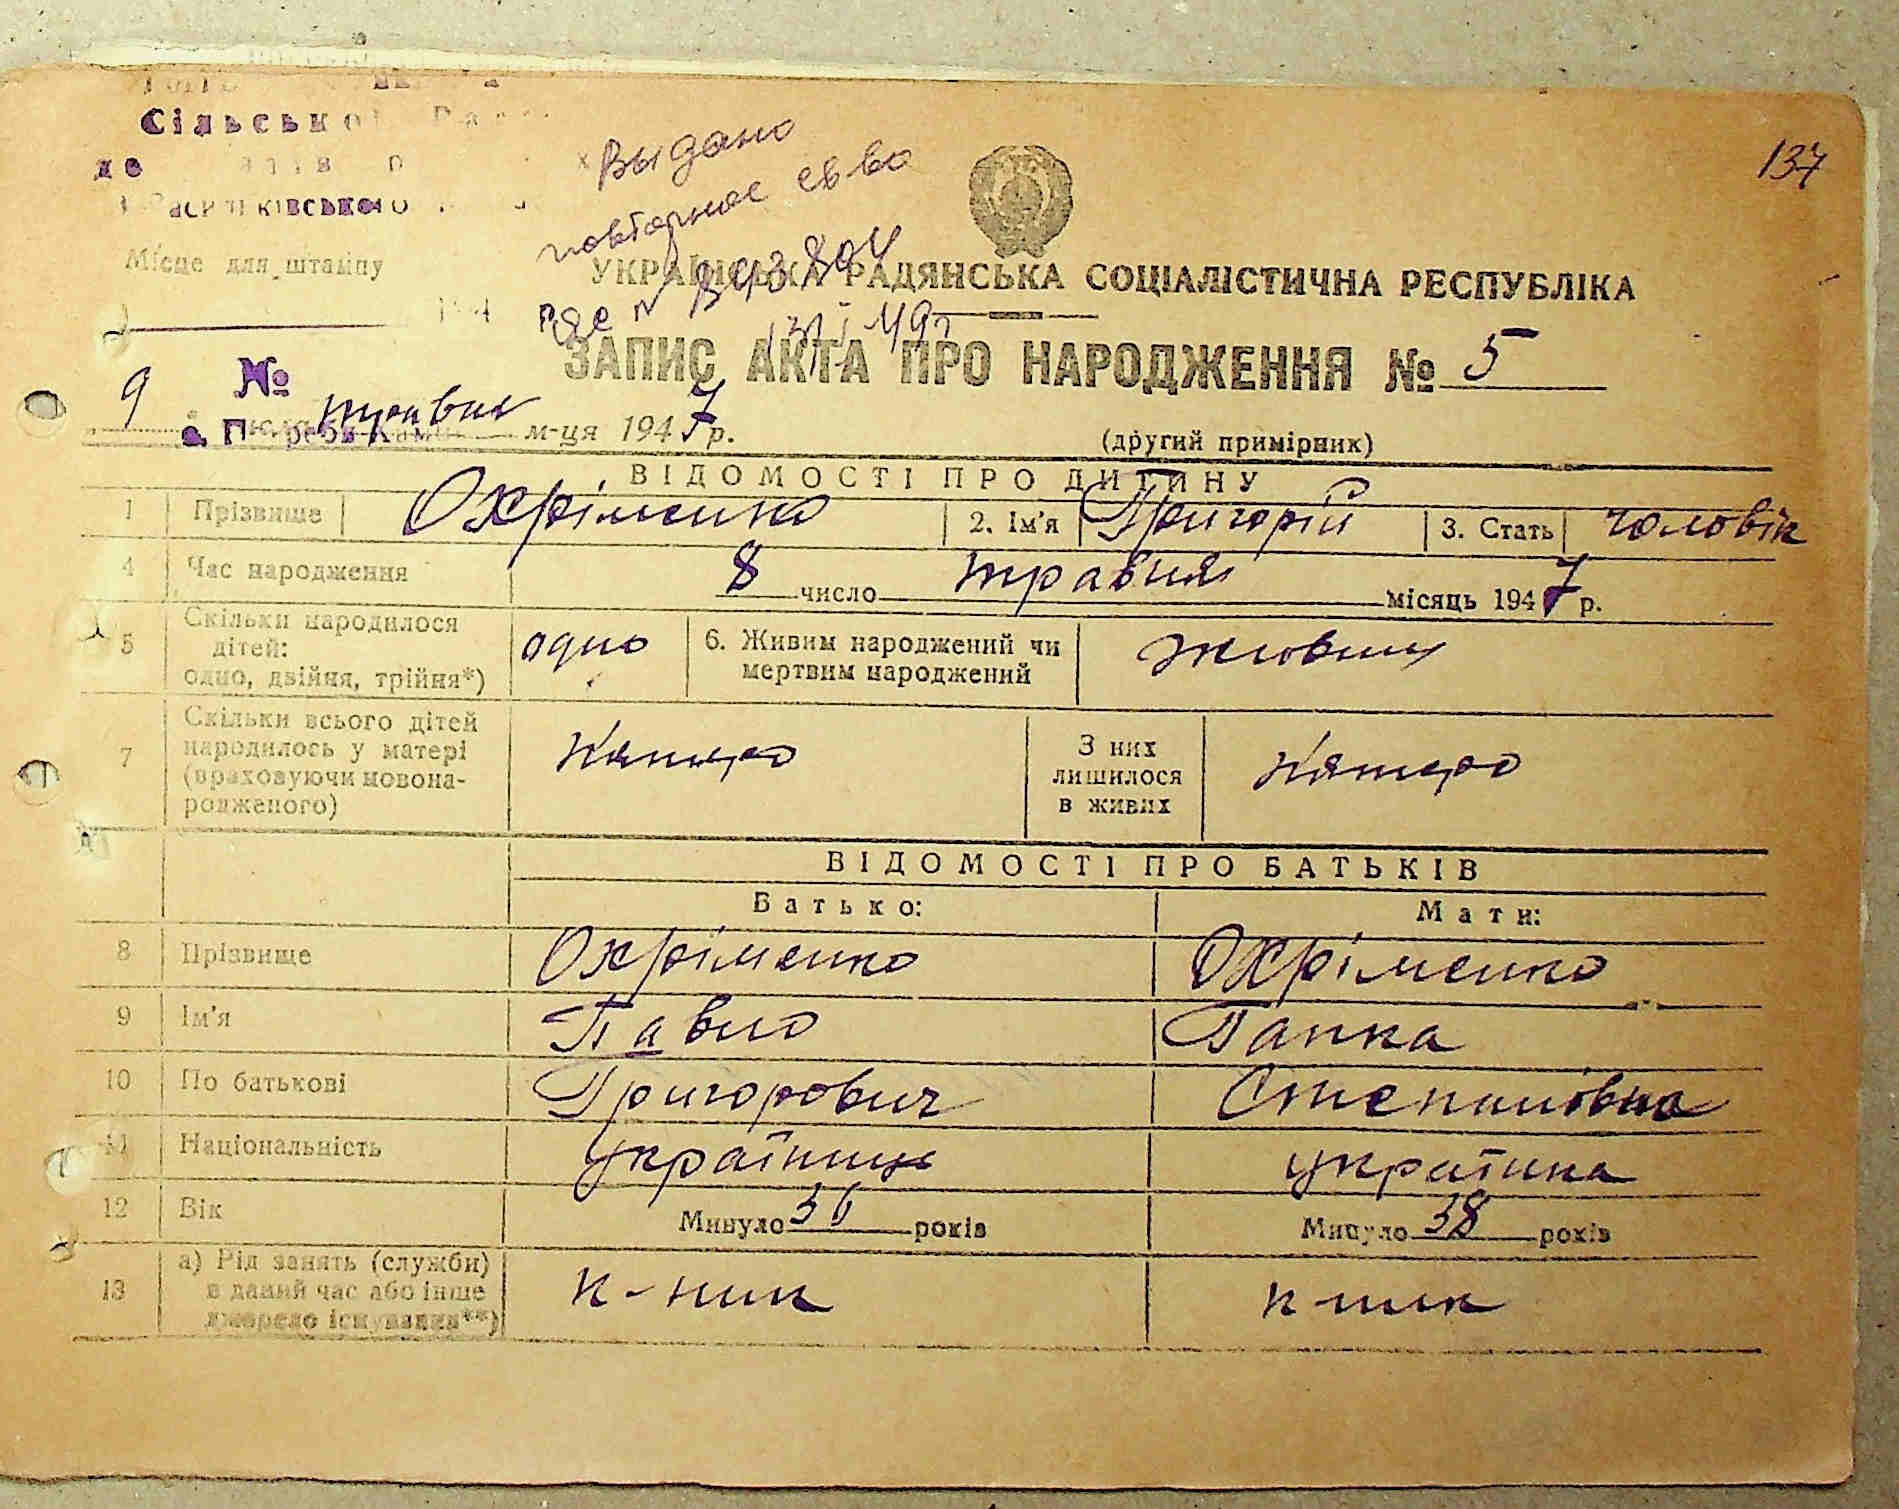 Сільської
Васильківського
Выдано
повторное св во
137
Місце для штампу
УКРАЇНСЬКА РАДЯНСЬКА СОЦІАЛІСТИЧНА РЕСПУБЛІКА
194
ЗАПИС АКТА ПРО НАРОДЖЕННЯ № 5
№
9 травня м-ця 1947 р.
(другий примірник)
ВІДОМОСТІ ПРО ДИТИНУ
1 Прізвище Охріменко 2. Ім'я Григорій 3. Стать чоловік
4 Час народження 8 число травня місяць 1947 р.
5 Скільки народилося дітей: одно, двійня, трійня*) одно 6. Живим народжений чи мертвим народжений живим
7 Скільки всього дітей народилось у матері (враховуючи новонародженого) пятеро З них лишилося в живих пятеро
ВІДОМОСТІ ПРО БАТЬКІВ
Батько: Мати:
8 Прізвище Охріменко Охріменко
9 Ім'я Павло Гапка
10 По батькові Григорович Степанівна
11 Національність українець українка
12 Вік Минуло 36 років Минуло 38 років
13 а) Рід занять (служби) в даний час або інше джерело існування**) к-ник к-ник